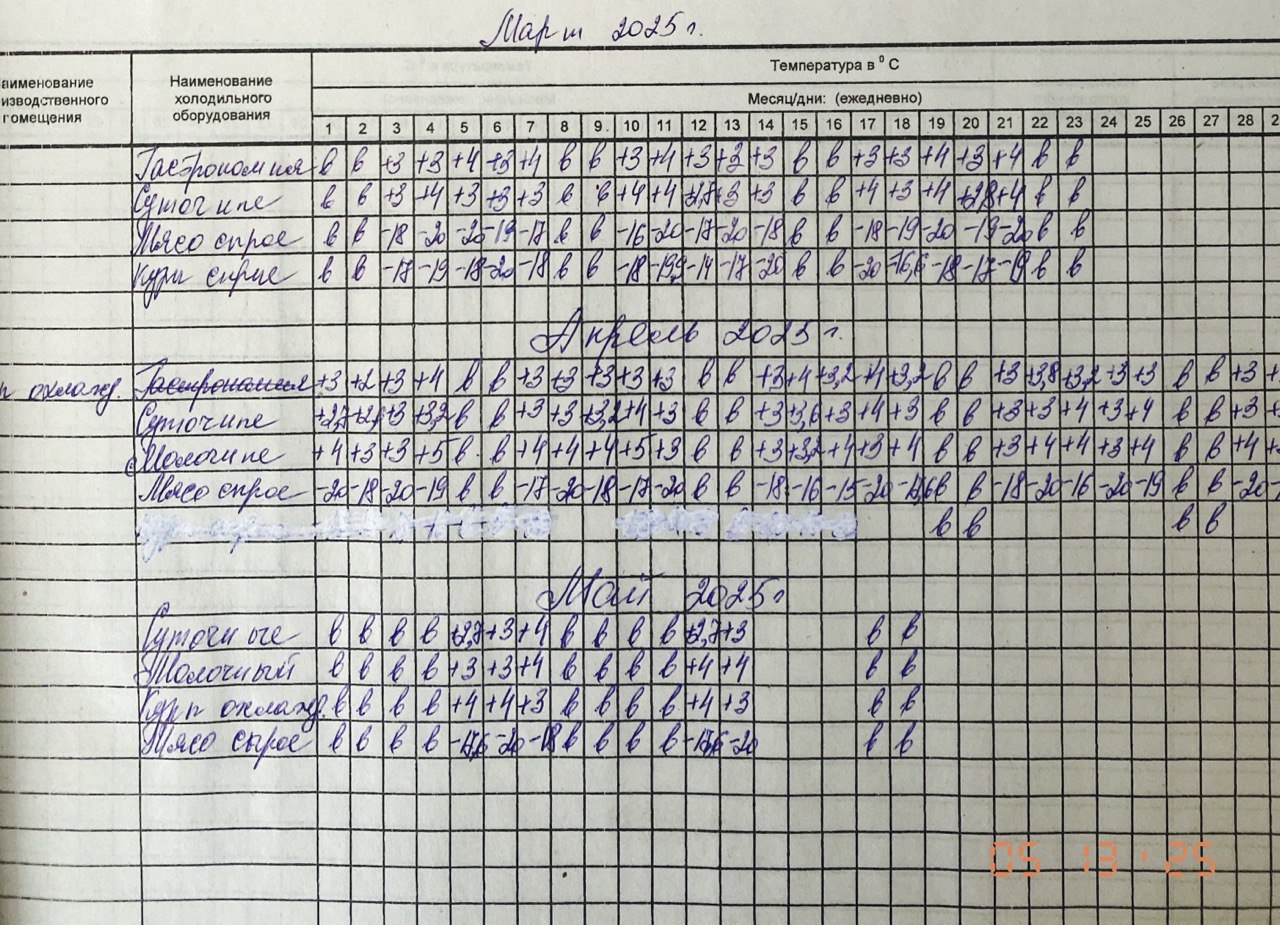 Март 2025 г.
аименование изводственного помещения Наименование холодильного оборудования Температура в ⁰ С
Месяц/дни: (ежедневно)
1 2 3 4 5 6 7 8 9 10 11 12 13 14 15 16 17 18 19 20 21 22 23 24 25 26 27 28 2
Гастрономия в в +3 +3 +4 +3 +4 в в +3 +4 +3 +3 +3 в в +3 +3 +4 +3 +4 в в
Суточные в в +3 +4 +3 +3 +3 в в +4 +4 +2,7 +3 +3 в в +4 +3 +4 +2,8 +4 в в
Мясо сырое в в -18 -20 -20 -19 -17 в в -16 -20 -17 -20 -18 в в -18 -19 -20 -19 -20 в в
Куры сырые в в -17 -19 -18 -20 -18 в в -18 -19,9 -14 -17 -20 в в -20 -16,6 -18 -17 -19 в в
Апрель 2025 г.
охлажд. Гастрономия +3 +2 +3 +4 в в +3 +3 +3 +3 +3 в в +3 +4 +3,2 +4 +3,2 в в +3 +3,8 +3,2 +3 +3 в в +3
Суточные +2,7 +2,6 +3 +3,2 в в +3 +3 +3,2 +4 +3 в в +3 +3,6 +3 +4 +3 в в +3 +3 +4 +3 +4 в в +3
Молочные +4 +3 +3 +5 в в +4 +4 +4 +5 +3 в в +3 +3,2 +4 +3 +4 в в +3 +4 +4 +3 +4 в в +4
Мясо сырое -20 -18 -20 -19 в в -17 -20 -18 -17 -20 в в -18 -16 -15 -20 -17,6 в в -18 -20 -16 -20 -19 в в -20
в в в в
Май 2025 г
Суточные в в в в +2,7 +3 +4 в в в в +2,7 +3 в в
Молочный в в в в +3 +3 +4 в в в в +4 +4 в в
Куры охлажд. в в в в +4 +4 +3 в в в в +4 +3 в в
Мясо сырое в в в в -17,6 -20 -18 в в в в -17,6 -20 в в
05 13 '25